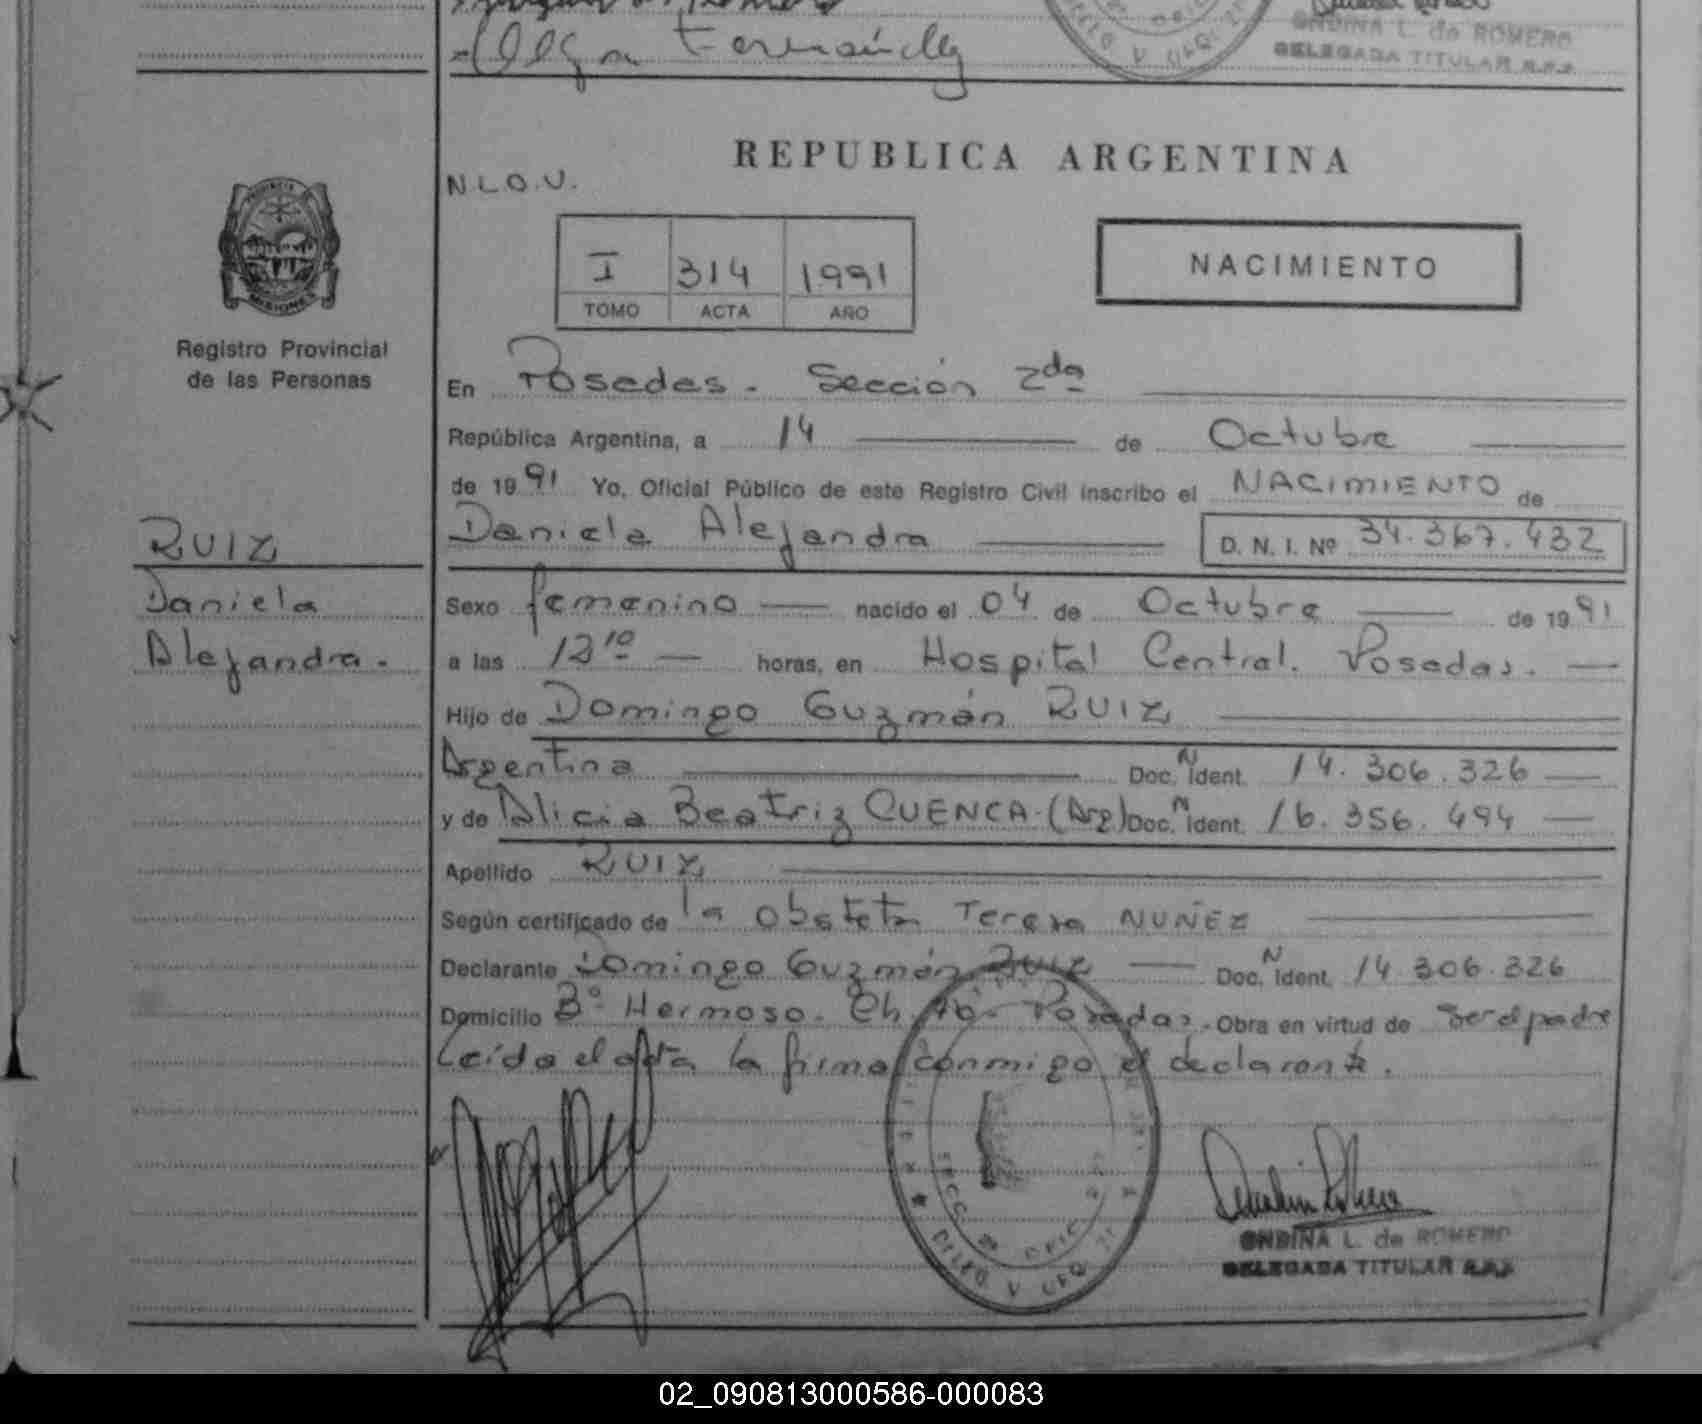 Olga Fernández
ONDINA L. de ROMERO
DELEGADA TITULAR R.P.P.
REPUBLICA ARGENTINA
N.L.O.V.
I 314 1991
TOMO ACTA AÑO
NACIMIENTO
MISIONES
Registro Provincial
de las Personas
En Posadas - Sección 2da
República Argentina, a 14 de Octubre
de 1991 Yo, Oficial Público de este Registro Civil inscribo el NACIMIENTO de
Daniela Alejandra D. N. I. Nº 34.367.432
RUIZ
Daniela
Alejandra.
Sexo femenino nacido el 04 de Octubre de 1991
a las 12 10 horas, en Hospital Central. Posadas.
Hijo de Domingo Guzmán RUIZ
Argentina Doc. N Ident. 14.306.326
y de Alicia Beatriz CUENCA (Arg) Doc. N Ident. 16.356.494
Apellido RUIZ
Según certificado de la obsteta Teresa NUÑEZ
Declarante Domingo Guzmán RUIZ Doc. N Ident. 14.306.326
Domicilio Bº Hermoso. Ch. Posadas. Obra en virtud de ser el padre
Leída el acta la firma conmigo el declarante.
ONDINA L. de ROMERO
DELEGADA TITULAR R.P.P.
02_090813000586-000083